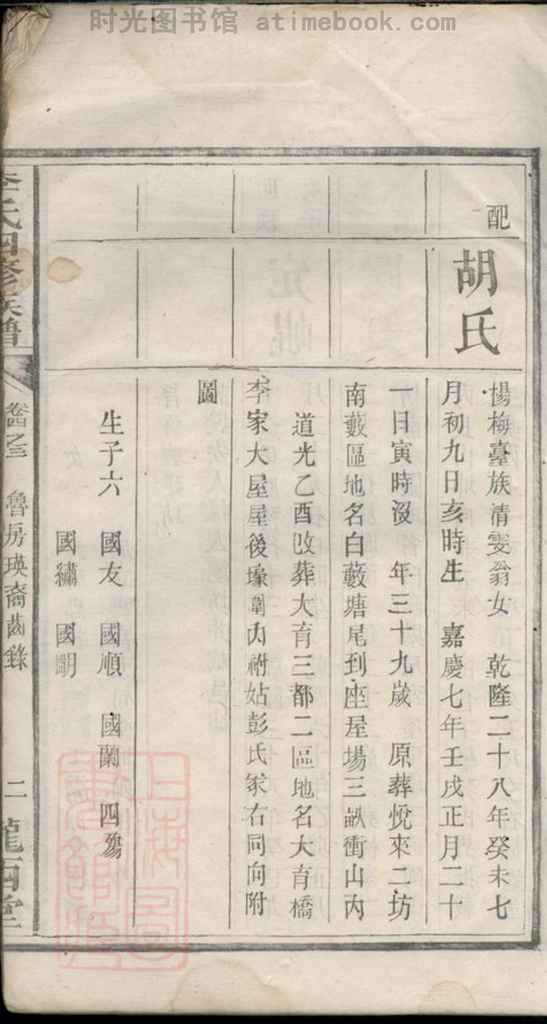 时光图书馆 atimebook.com
配
胡氏
楊梅臺族清雯翁女 乾隆二十八年癸未七
月初九日亥時生 嘉慶七年壬戌正月二十
一日寅時沒 年三十九歲 原葬悅來二坊
南藪區地名白藪塘尾到座屋場三畝衝山內
道光乙酉改葬大育三都二區地名大育橋
李家大屋屋後壕圍內祔姑彭氏冢右同向附
圖
生子六 國友 國順 國蘭 四為
國繡 國明
李氏四修族譜
卷四之三 魯房瑛裔齒錄 二 隴西堂
上海圖書館藏